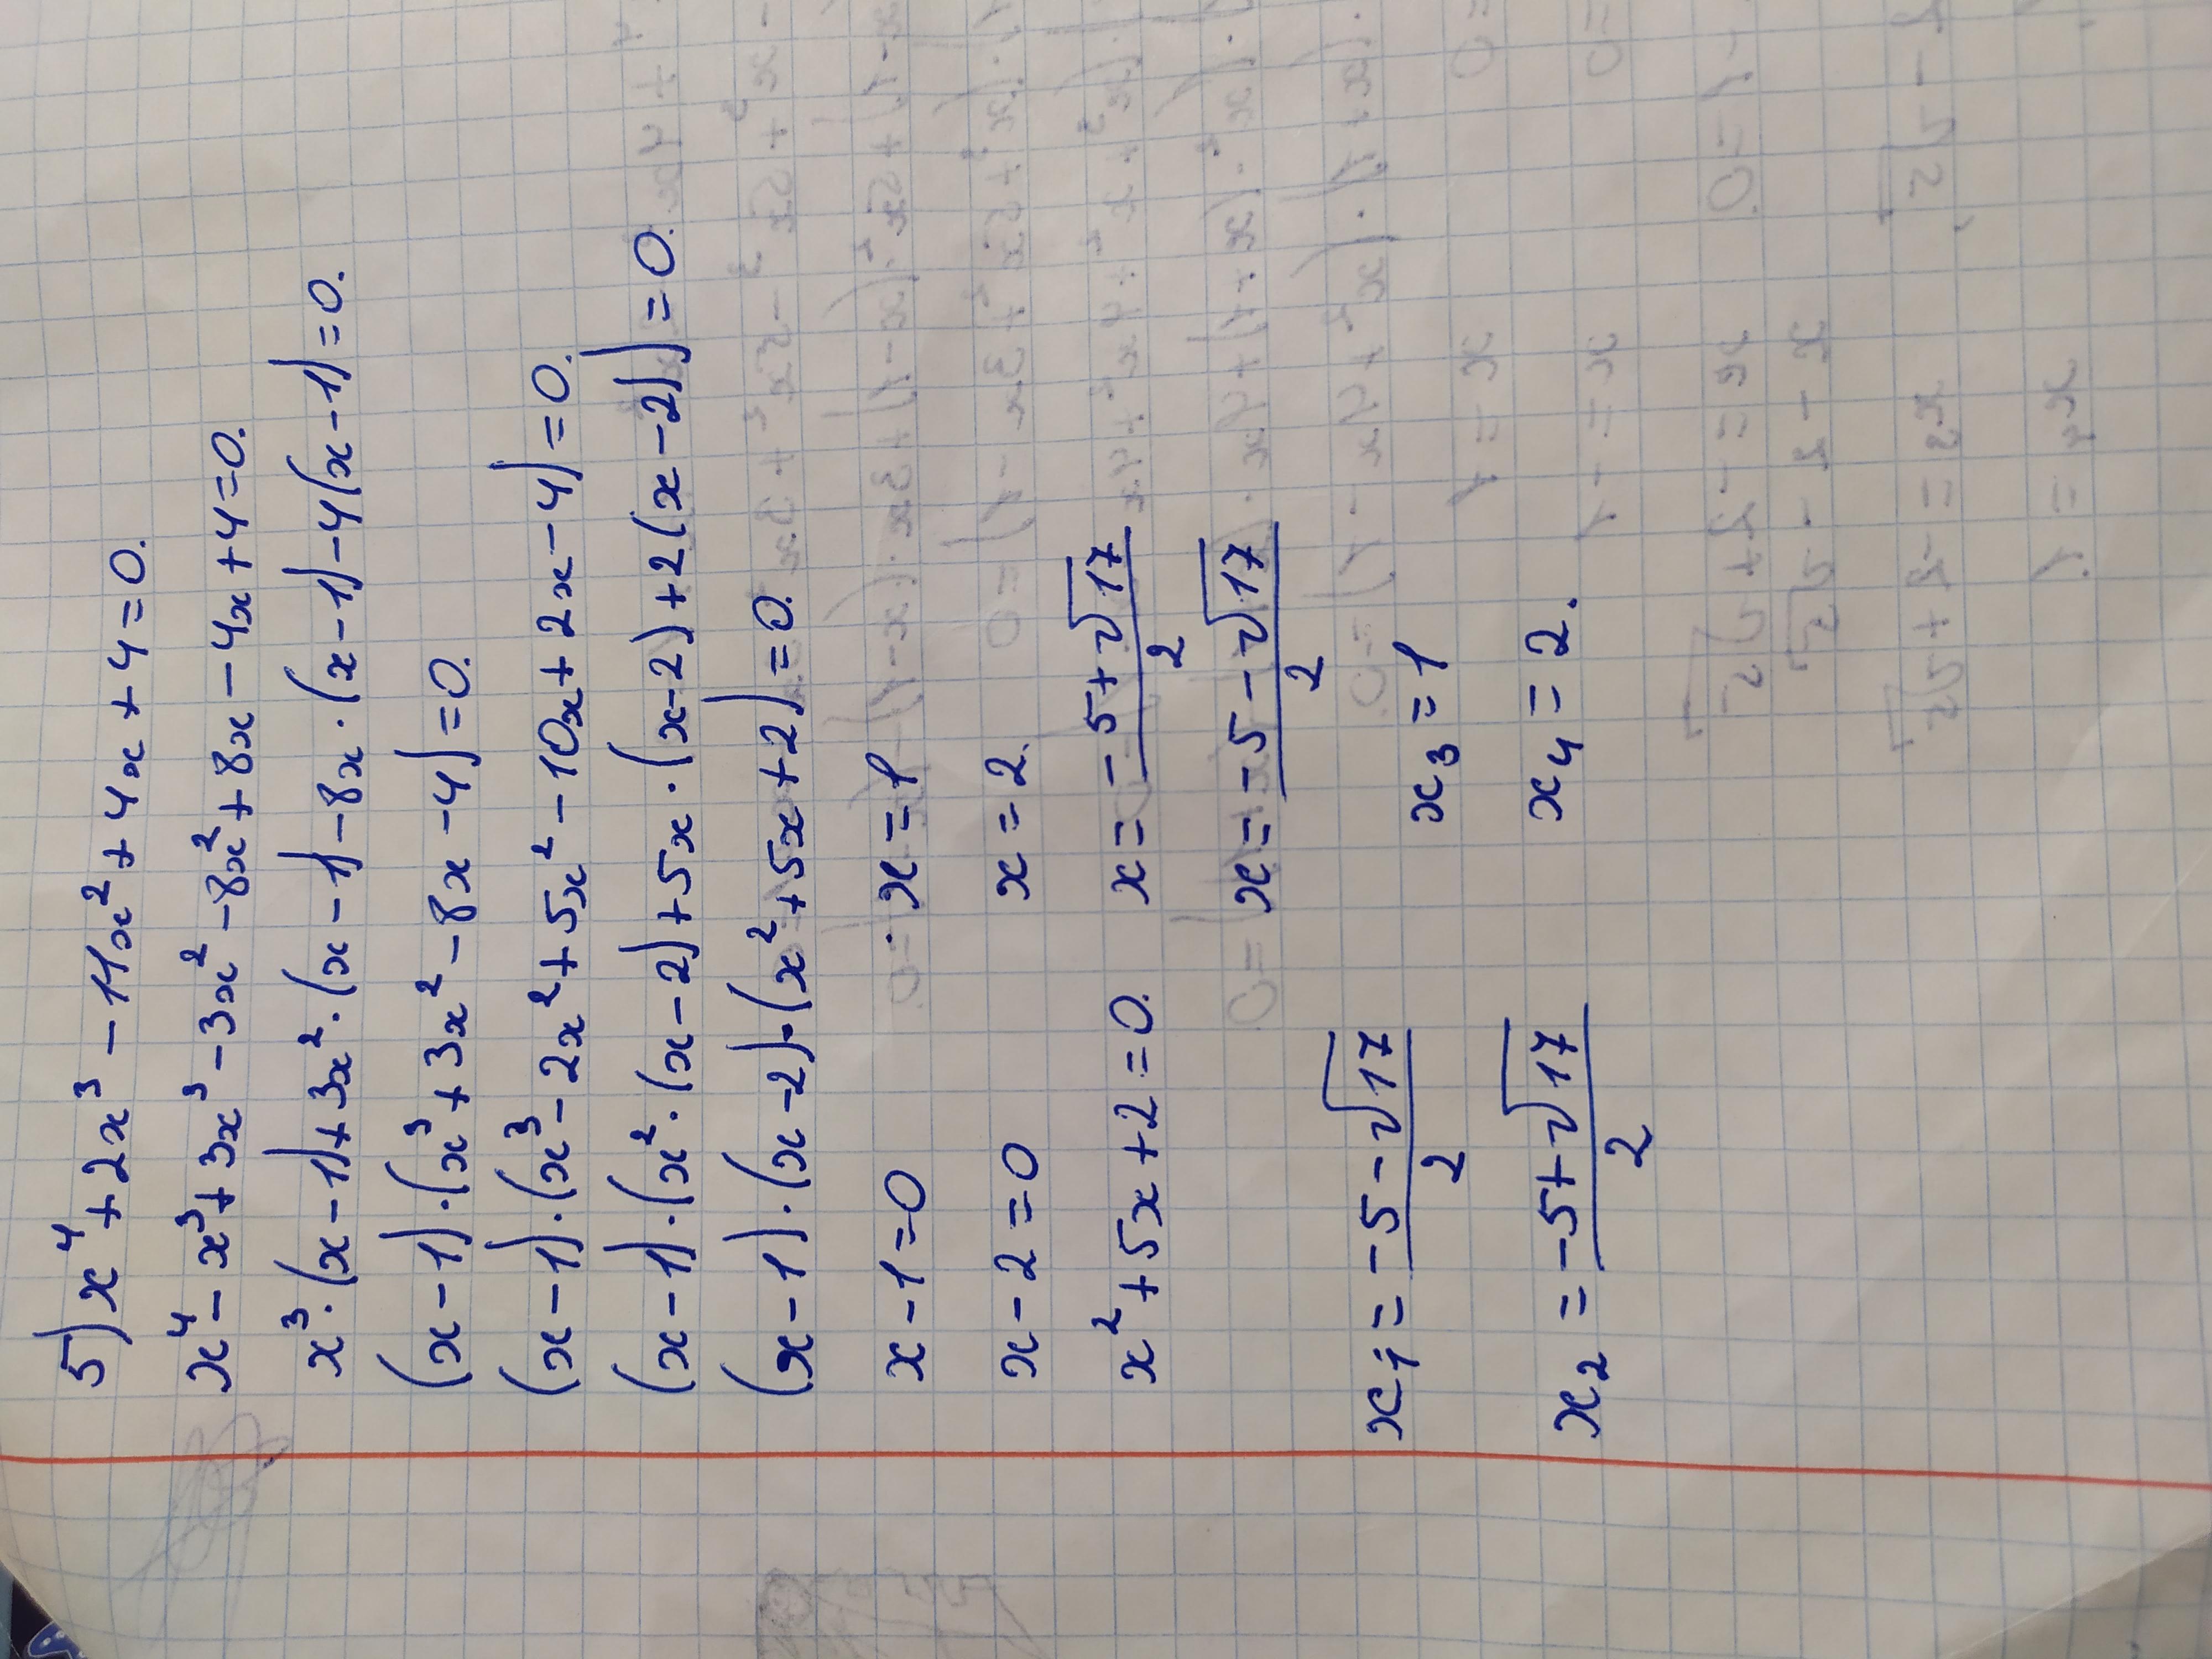 5) x⁴ + 2x³ − 11x² + 4x + 4 = 0.
x⁴ − x³ + 3x³ − 3x² − 8x² + 8x − 4x + 4 = 0.
x³ · (x − 1) + 3x² · (x − 1) − 8x · (x − 1) − 4(x − 1) = 0.
(x − 1) · (x³ + 3x² − 8x − 4) = 0.
(x − 1) · (x³ − 2x² + 5x² − 10x + 2x − 4) = 0.
(x − 1) · (x² · (x − 2) + 5x · (x − 2) + 2(x − 2)) = 0.
(x − 1) · (x − 2) · (x² + 5x + 2) = 0.
x − 1 = 0 x = 1
x − 2 = 0 x = 2.
x² + 5x + 2 = 0. x = (−5 + √17)/2
x = (−5 − √17)/2
x₁ = (−5 − √17)/2 x₃ = 1
x₂ = (−5 + √17)/2 x₄ = 2.